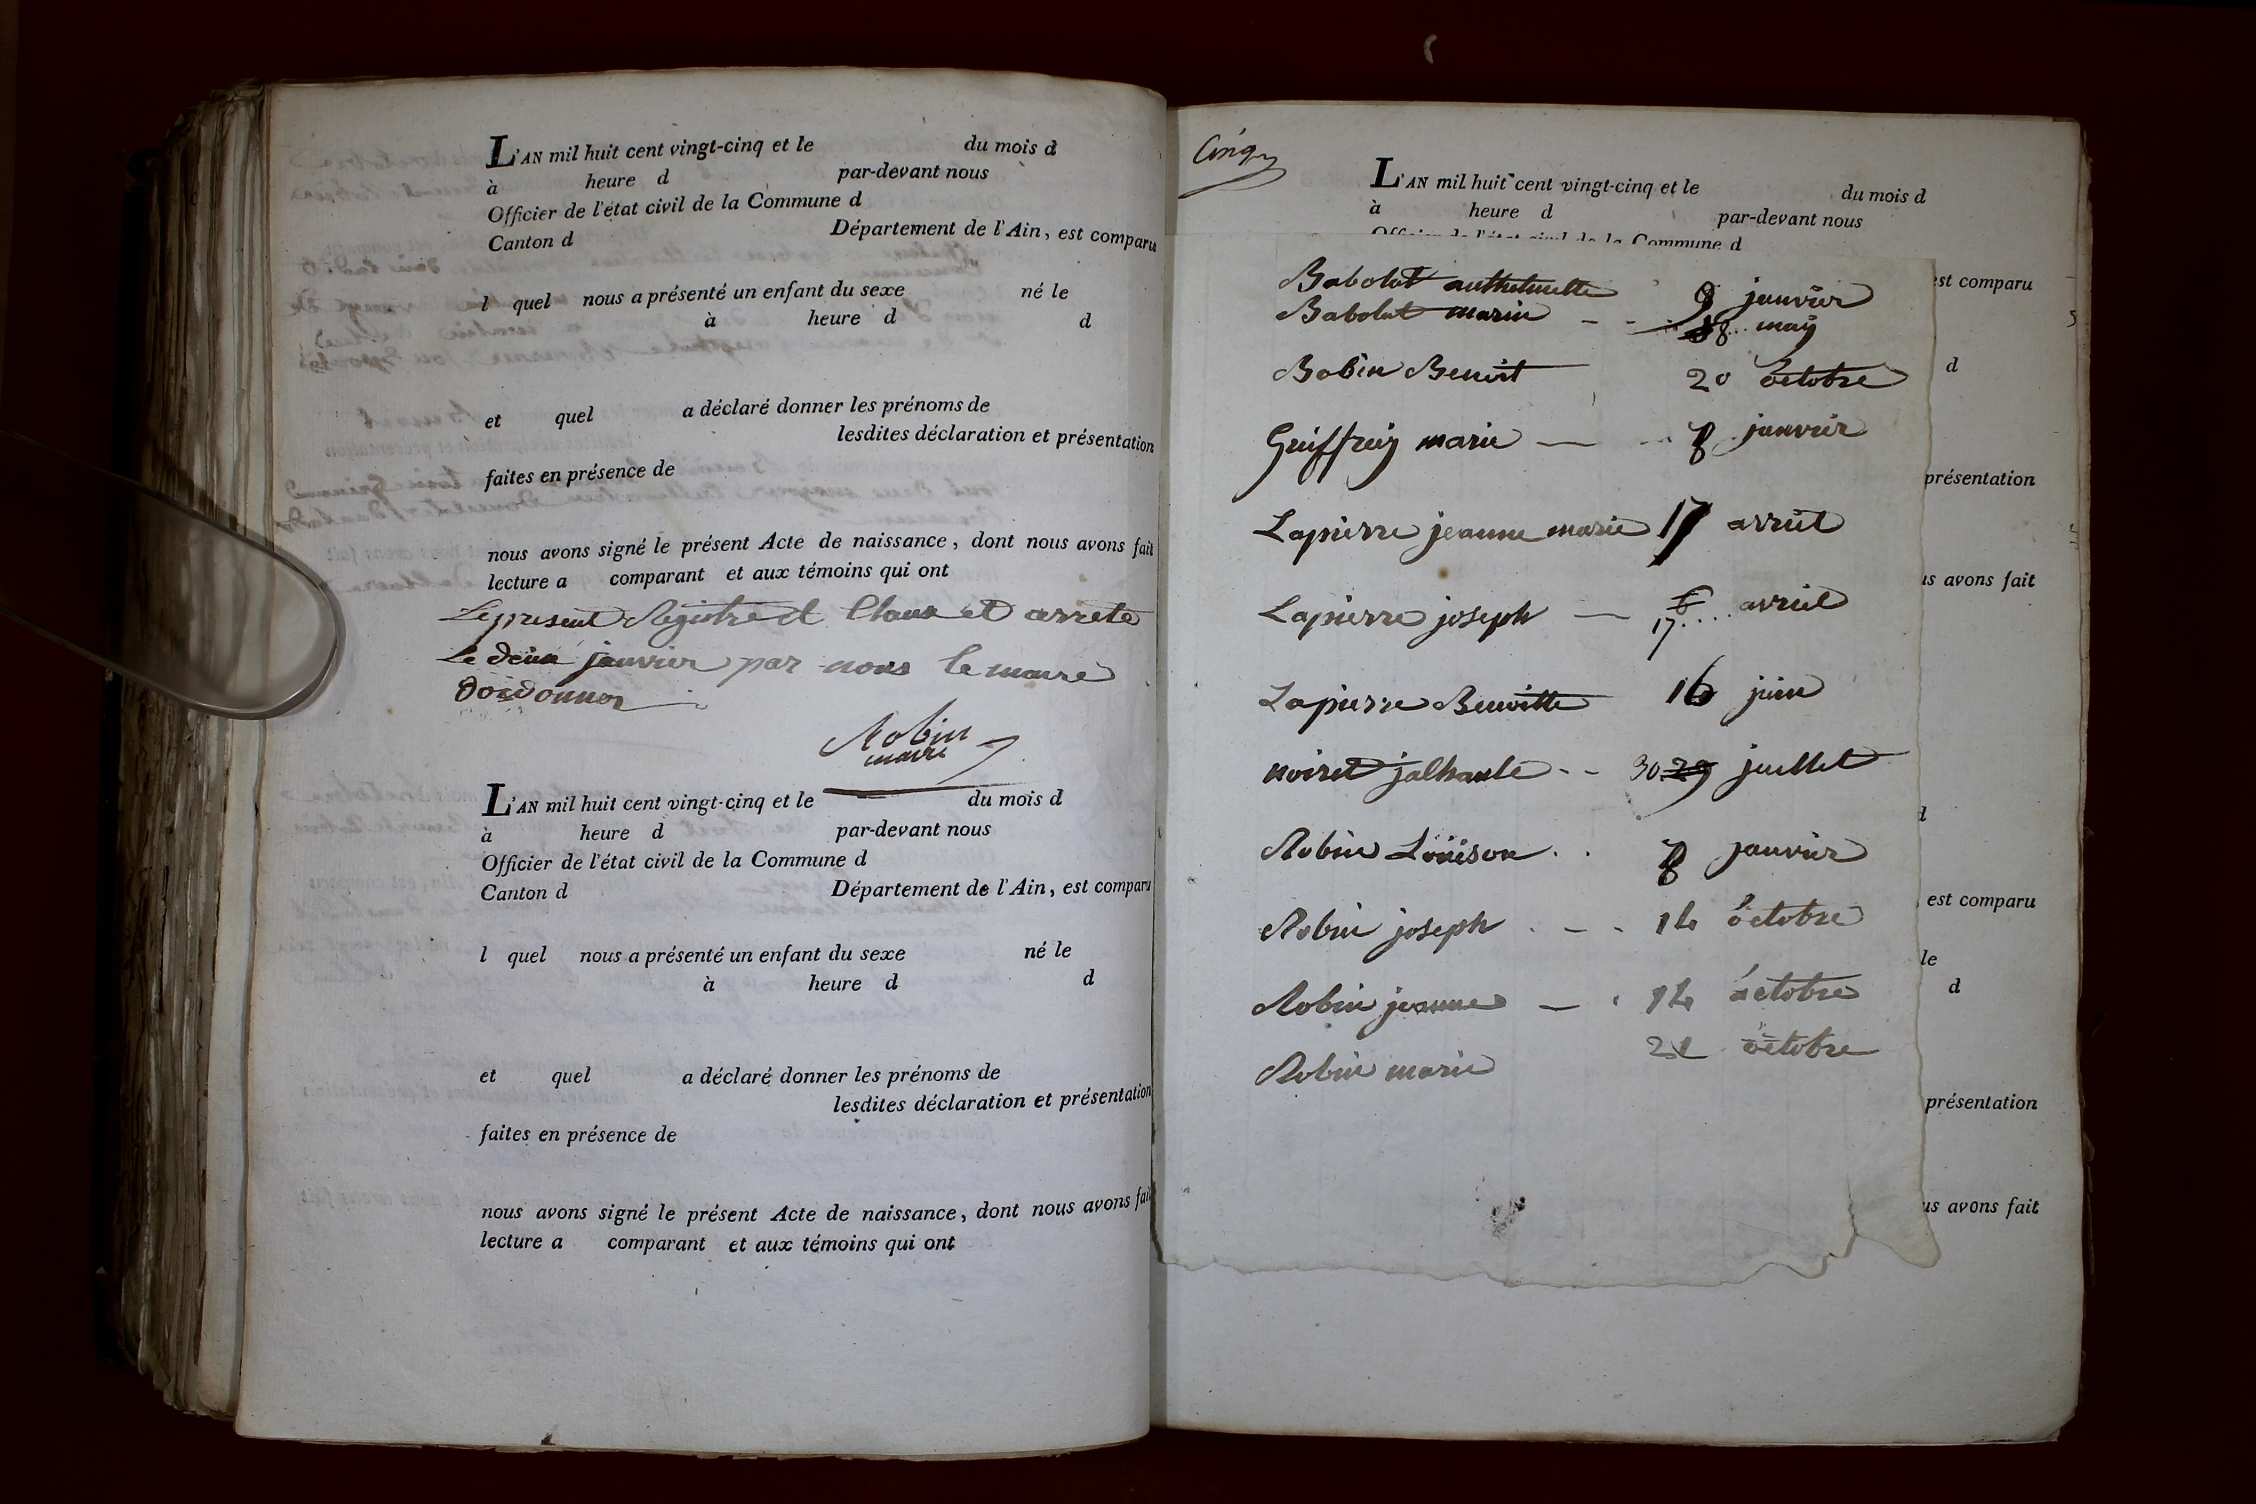 L'AN mil huit cent vingt-cinq et le du mois d
à heure d par-devant nous
Officier de l'état civil de la Commune d
Canton d Département de l'Ain, est comparu
l quel nous a présenté un enfant du sexe né le
à heure d d
et quel a déclaré donner les prénoms de
lesdites déclaration et présentation
faites en présence de
nous avons signé le présent Acte de naissance, dont nous avons fait
lecture a comparant et aux témoins qui ont
Le present Registre et Claus et arreté
Le deux janvier par nous le maire
Robin
maire
L'AN mil huit cent vingt-cinq et le du mois d
à heure d par-devant nous
Officier de l'état civil de la Commune d
Canton d Département de l'Ain, est comparu
l quel nous a présenté un enfant du sexe né le
à heure d d
et quel a déclaré donner les prénoms de
lesdites déclaration et présentation
faites en présence de
nous avons signé le présent Acte de naissance, dont nous avons fait
lecture a comparant et aux témoins qui ont
Cinq
L'AN mil huit cent vingt-cinq et le du mois d
à heure d par-devant nous
Officier de l'état civil de la Commune d
est comparu
Babolat 9 janvier
Babolat marie 18 may
Bobin Benoit 20 octobre
d
Guiffrey marie 8 janvier
présentation
Lapierre jeanne marie 17 avril
us avons fait
Lapierre joseph 17 avriel
Lapierre Benoitte 16 juin
noiret 30 29 juillet
d
Robin Loüison 8 janvier
est comparu
Robin joseph 14 octobre
le
d
Robin jeanne 14 octobre
Robin marie 21 octobre
présentation
us avons fait